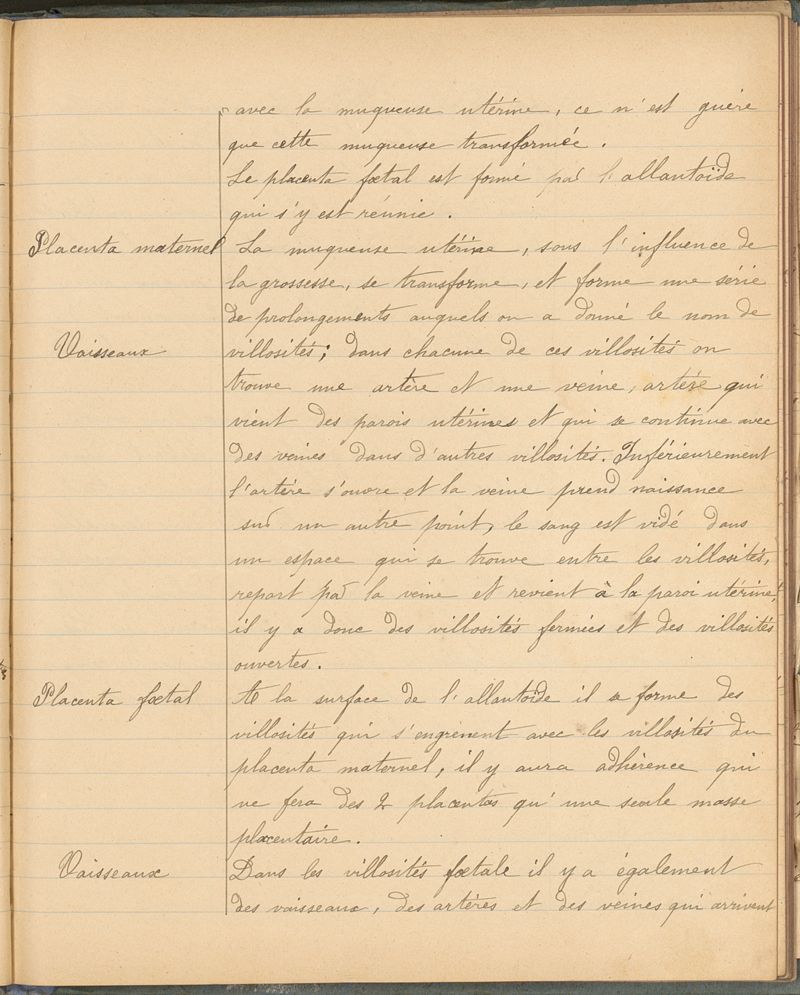 avec la muqueuse utérine, ce n'est guère
que cette muqueuse transformée.
Le placenta fœtal est formé par l'allantoïde
qui s'y est réunie.
Placenta maternel La muqueuse utérine, sous l'influence de
la grossesse, se transforme, et forme une série
de prolongements auquels on a donné le nom de
Vaisseaux villosités; dans chacune de ces villosités on
trouve une artère et une veine, artère qui
vient des parois utérines et qui se continue avec
des veines dans d'autres villosités. Inférieurement
l'artère s'ouvre et la veine prend naissance
sur un autre point, le sang est vidé dans
un espace qui se trouve entre les villosités,
repart par la veine et revient à la paroi utérine,
il y a donc des villosités fermées et des villosités
ouvertes.
Placenta fœtal A la surface de l'allantoïde il se forme des
villosités qui s'engrènent avec les villosités du
placenta maternel, il y aura adhérence qui
ne fera des 2 placentas qu'une seule masse
placentaire.
Vaisseaux Dans les villosités fœtale il y a également
des vaisseaux, des artères et des veines qui arrivent